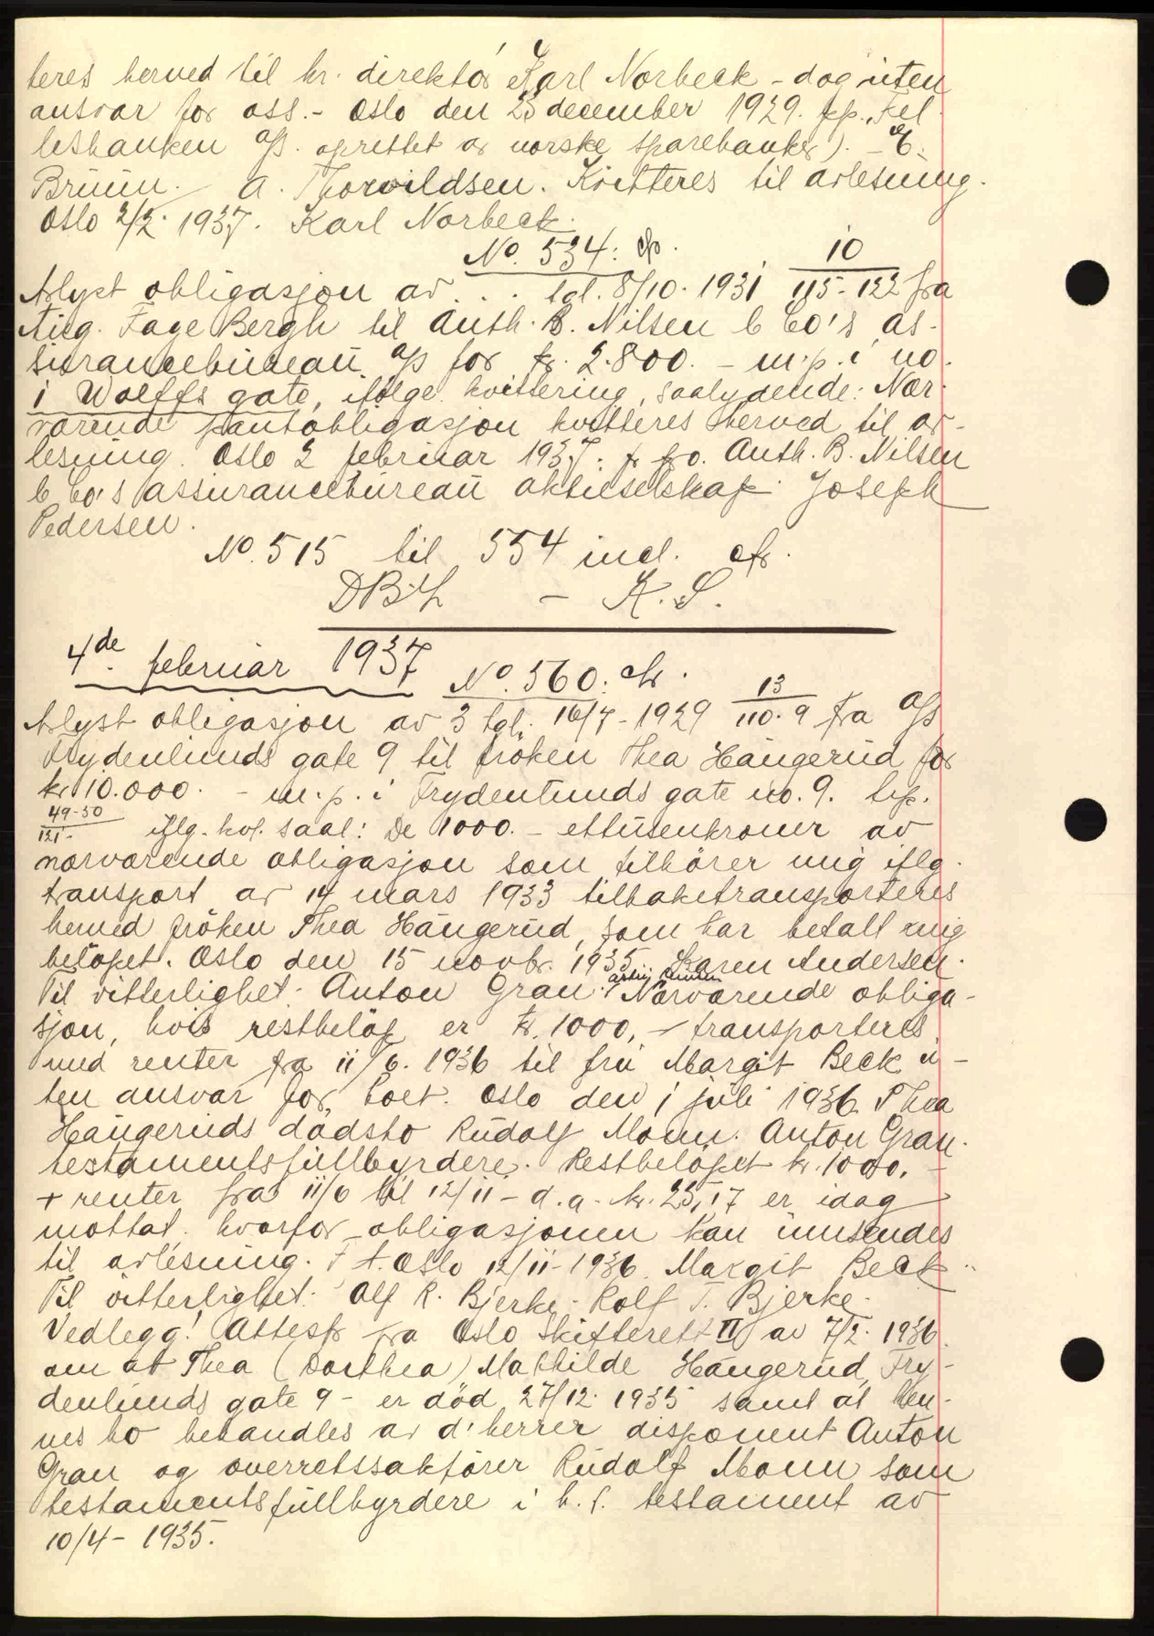 teres herved til hr. direktør Karl Norbeck - dog uten
ansvar for oss.- Oslo den 23 december 1929. pp. Fel-
lesbanken A/S. oprettet av norske sparebanker). - E.
Bruun. A. Thorvildsen. Kvitteres til avlesning.
Oslo 2/2. 1937. Karl Norbeck.
No. 534: cfr.
Avlyst obligasjon av . . . tgl. 8/10. 1931 10/115-122 fra
Aug. Faye Bergh til Auth. B. Nilsen & Co's as-
surancebureau A/S for kr. 2.800. - m.p. i no.
1 Wolffs gate, ifølge kvittering, saalydende: Nær-
værende pantobligasjon kvitteres herved til av-
lesning. Oslo 2 februar 1937. Auth. B. Nilsen
& Co's assurancebureau aktieselskap. Joseph
Pedersen.
No. 515 til 554 incl. cfr.
DBH - K.S.
4de februar 1937 No. 560. cfr.
Avlyst obligasjon av 3 tgl. 16/7-1929 13/110.9 fra A/S
Frydenlunds gate 9 til frøken Thea Haugerud for
kr. 10.000. - m.p. i Frydenlunds gate no. 9. tip.
49-50/121- iflg. kvf. saal: De 1000. - ettusenkroner av
nærværende obligasjon som tilhører mig iflg.
transport av 14 mars 1933 tilbaketransporteres
herved frøken Thea Haugerud, som har betalt mig
beløpet. Oslo den 15 novbr. 1935 Karen Andersen.
Til vitterlighet: Anton Gran. Nærværende obliga-
sjon, hvis restbeløp er kr. 1000,- transporteres
med renter fra 11/6. 1936 til fru Margit Beck u-
ten ansvar for boet. Oslo den 1 juli 1936. Thea
Haugeruds dødsbo Rudolf Monn. Anton Gran.
testamentsfullbyrdere. Restbeløpet kr. 1000,-
+ renter fra 11/6 til 12/11 - d.a. kr. 25,17 er idag
mottat, hvorfor obligasjonen kan innsendes
til avlesning. Oslo 12/11-1936. Margit Beck.
Til vitterlighet: Alf R. Bjerke. Rolf T. Bjerke.
Vedlegg! Attest fra Oslo Skifterett II av 7/2. 1936.
om at Thea (Dorthea) Mathilde Haugerud, Fry-
denlunds gate 9 - er død 27/12. 1935 samt at hen-
nes bo behandles av d'herrer disponent Anton
Gran og overretssakfører Rudolf Monn som
testamentsfullbyrdere i h.t. testament av
10/4 - 1935.